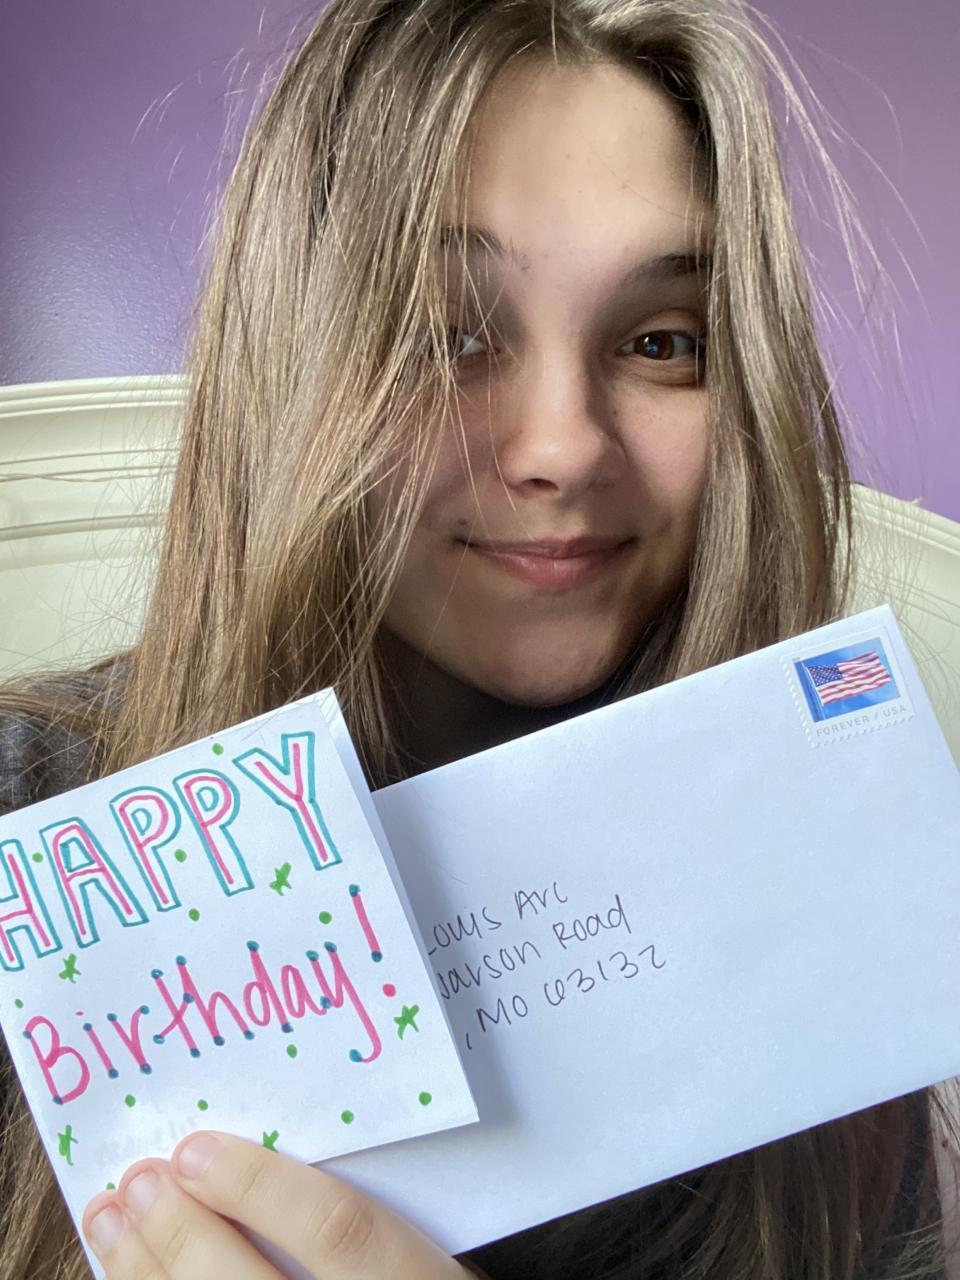 HAPPY
Birthday!
FOREVER / USA
Louis Arc
Warson Road
, MO 63132